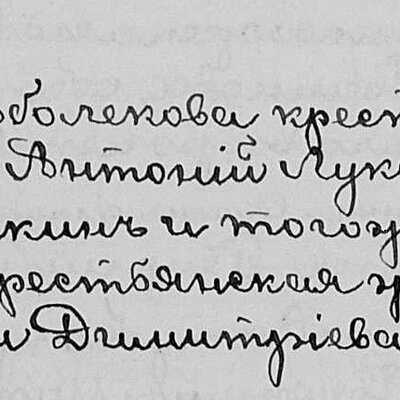 оболекова крест
Антоній Лук
кинъ и тогож
рестьянская
и Димитріева